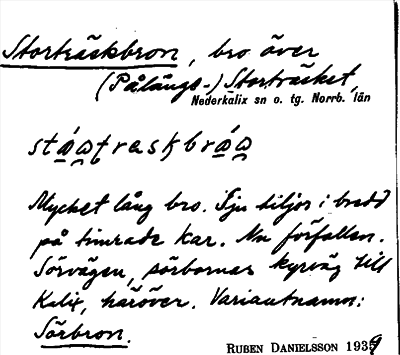 Storträskbron, bro över
(Pålängs-) Storträsket,
Nederkalix sn o. tg. Norrb. län
Mycket lång bro. Sju tiljor i bredd
på timrade kar. Nu förfallen.
Sörvägen, sörbornas kyrväg till
Kalix, häröver. Variantnamn:
Sörbron.
RUBEN DANIELSSON 1939